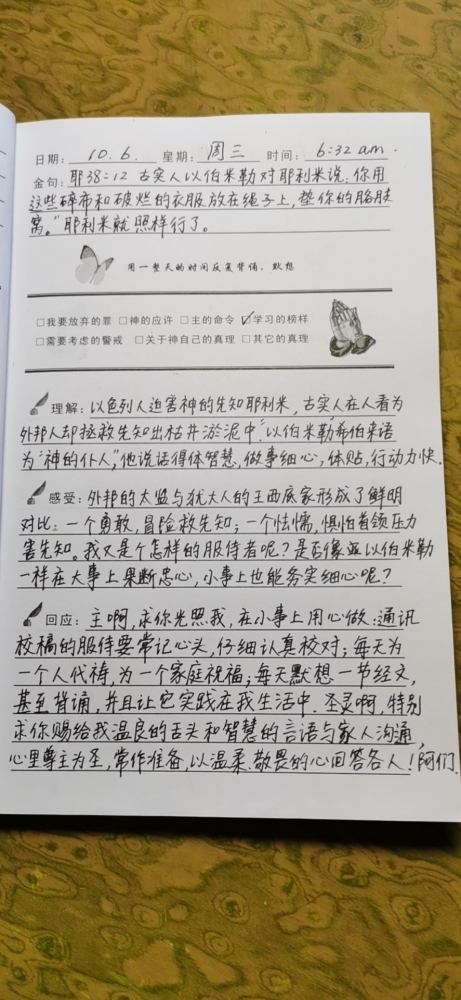 日期: 10.6. 星期: 周三 时间: 6:32 am.
金句: 耶38:12 古实人以伯米勒对耶利米说:“你用
这些碎布和破烂的衣服放在绳子上,垫你的胳肢
窝。”耶利米就照样行了。
用一整天的时间反复背诵,默想
□我要放弃的罪 □神的应许 □主的命令 ☑学习的榜样
□需要考虑的警戒 □关于神自己的真理 □其它的真理
理解: 以色列人迫害神的先知耶利米,古实人在人看为
外邦人却拯救先知出枯井淤泥中。“以伯米勒”希伯来语
为“神的仆人”,他说话得体智慧,做事细心,体贴,行动力快.
感受: 外邦的太监与犹大人的王西底家形成了鲜明
对比:一个勇敢,冒险救先知;一个怯懦,惧怕首领压力
害先知。我又是个怎样的服侍者呢?是否像以伯米勒
一样在大事上果断忠心,小事上也能务实细心呢?
回应: 主啊,求你光照我,在小事上用心做:通讯
校稿的服侍要常记心头,仔细认真校对;每天为
一个人代祷,为一个家庭祝福;每天默想一节经文,
甚至背诵,并且让它实践在我生活中.圣灵啊,特别
求你赐给我温良的舌头和智慧的言语与家人沟通,
心里尊主为圣,常作准备,以温柔.敬畏的心回答各人!阿们.